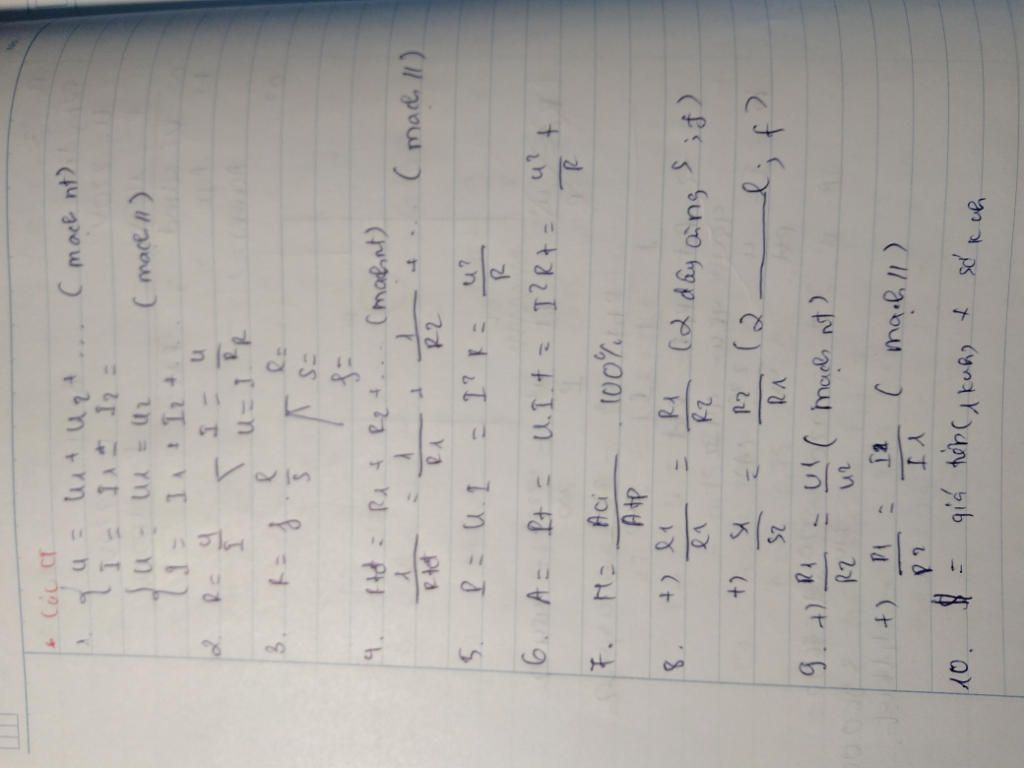 * Các CT
1. { U = U1 + U2 + .... ( mạch nt)
I = I1 = I2 =
{ U = U1 = U2 ( mạch //)
I = I1 + I2 + ...
2. R = U/I I = U/R
U = I.R
3. R = ρ . l/S l =
S =
ρ =
4. Rtđ = R1 + R2 + .... (mạch nt)
1/Rtđ = 1/R1 + 1/R2 + ... ( mạch //)
5. P = U.I = I²R = U²/R
6. A = Pt = UIt = I²Rt = U²/R t
7. H = Aci/Atp 100%
8. +) l1/l1 = R1/R2 (2 dây cùng S ; ρ)
+) S1/S2 = R2/R1 (2 ____ l ; ρ)
9. +) R1/R2 = U1/U2 ( mạch nt)
+) R1/R2 = I2/I1 ( mạch //)
10. $ = giá tiền(1kwh) x số kwh